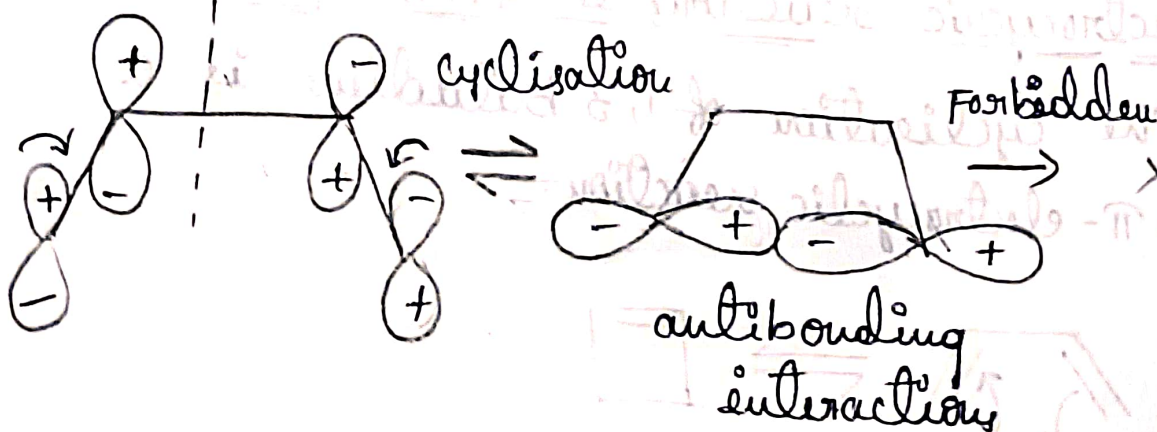 + -
cyclisation
Forbidden
+ - + -
- + - +
- +
antibonding
interactions